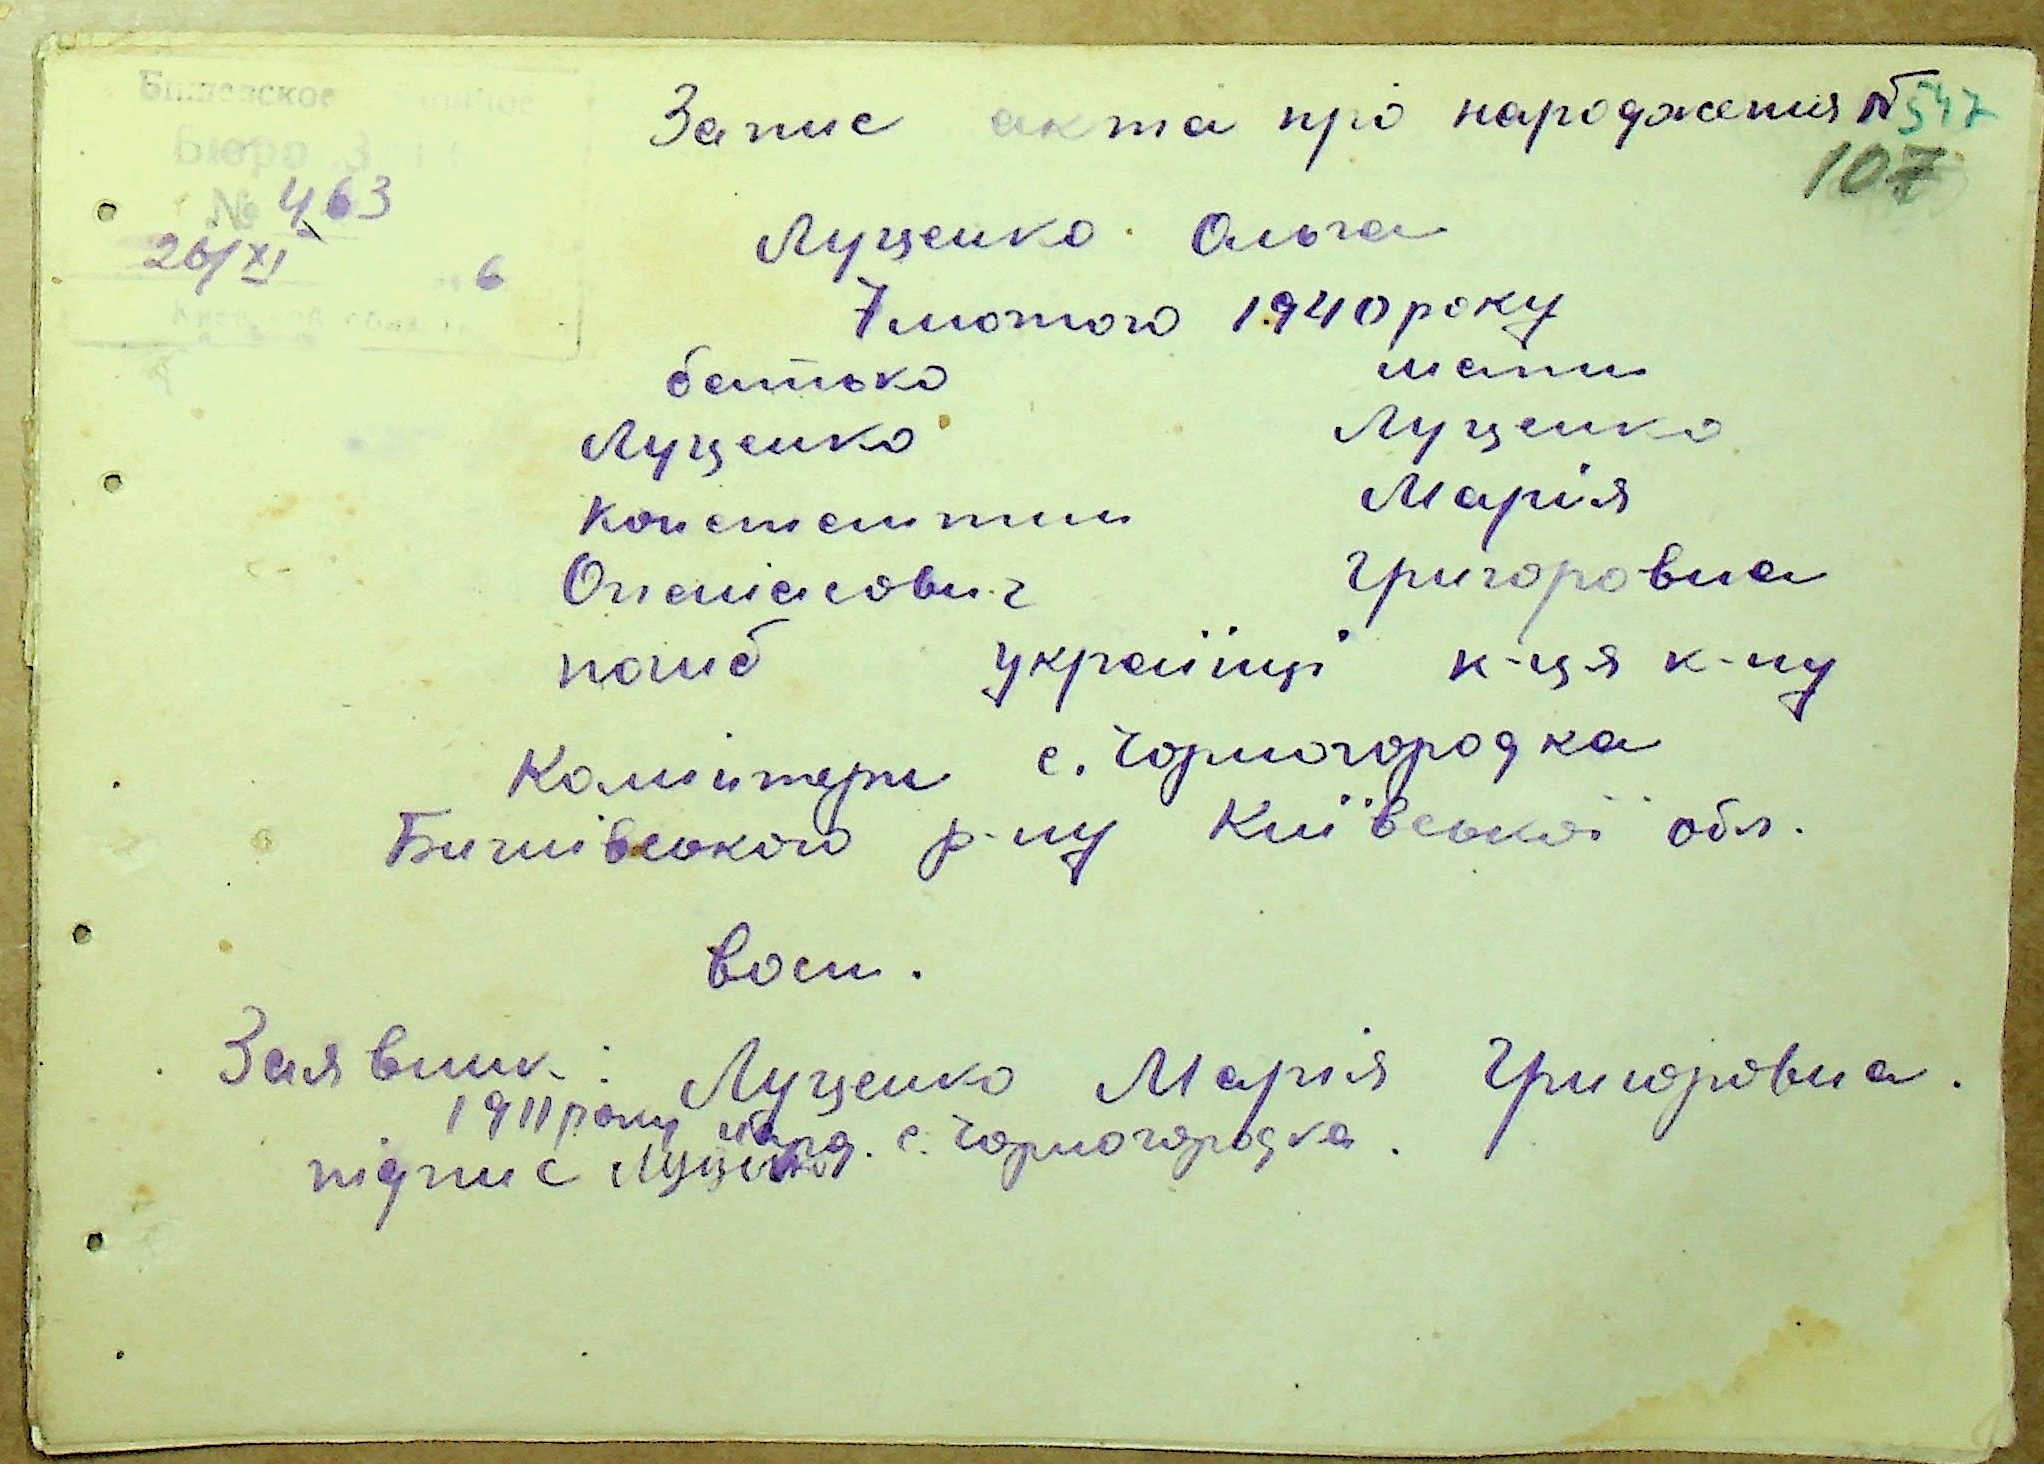 Бюро
№ 463
26/XI 6
Запис акта про народження № 547
107
Луценко Ольга
7 лютого 1940 року
батько мати
Луценко Луценко
Констситин Марія
Опанасович Григоровна
погиб українці к-ця к-пу
Комінтерн с. Чорногородка
Бишівського р-ну Київської обл.
восн.
Заявник: Луценко Марія Григоровна.
1911 року нард. с. Чорногородка.
підпис Луценко